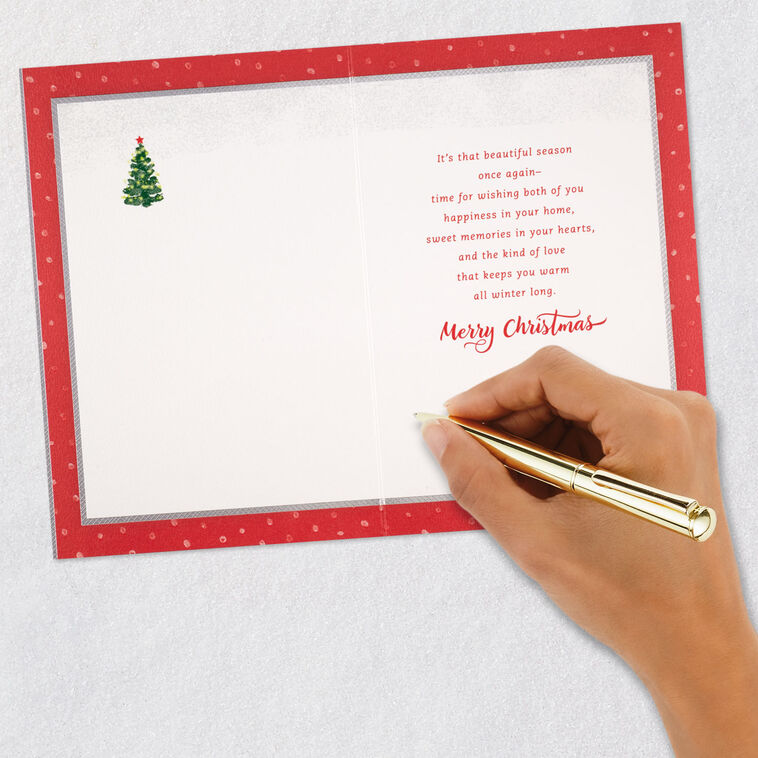 It's that beautiful season
once again–
time for wishing both of you
happiness in your home,
sweet memories in your hearts,
and the kind of love
that keeps you warm
all winter long.
Merry Christmas